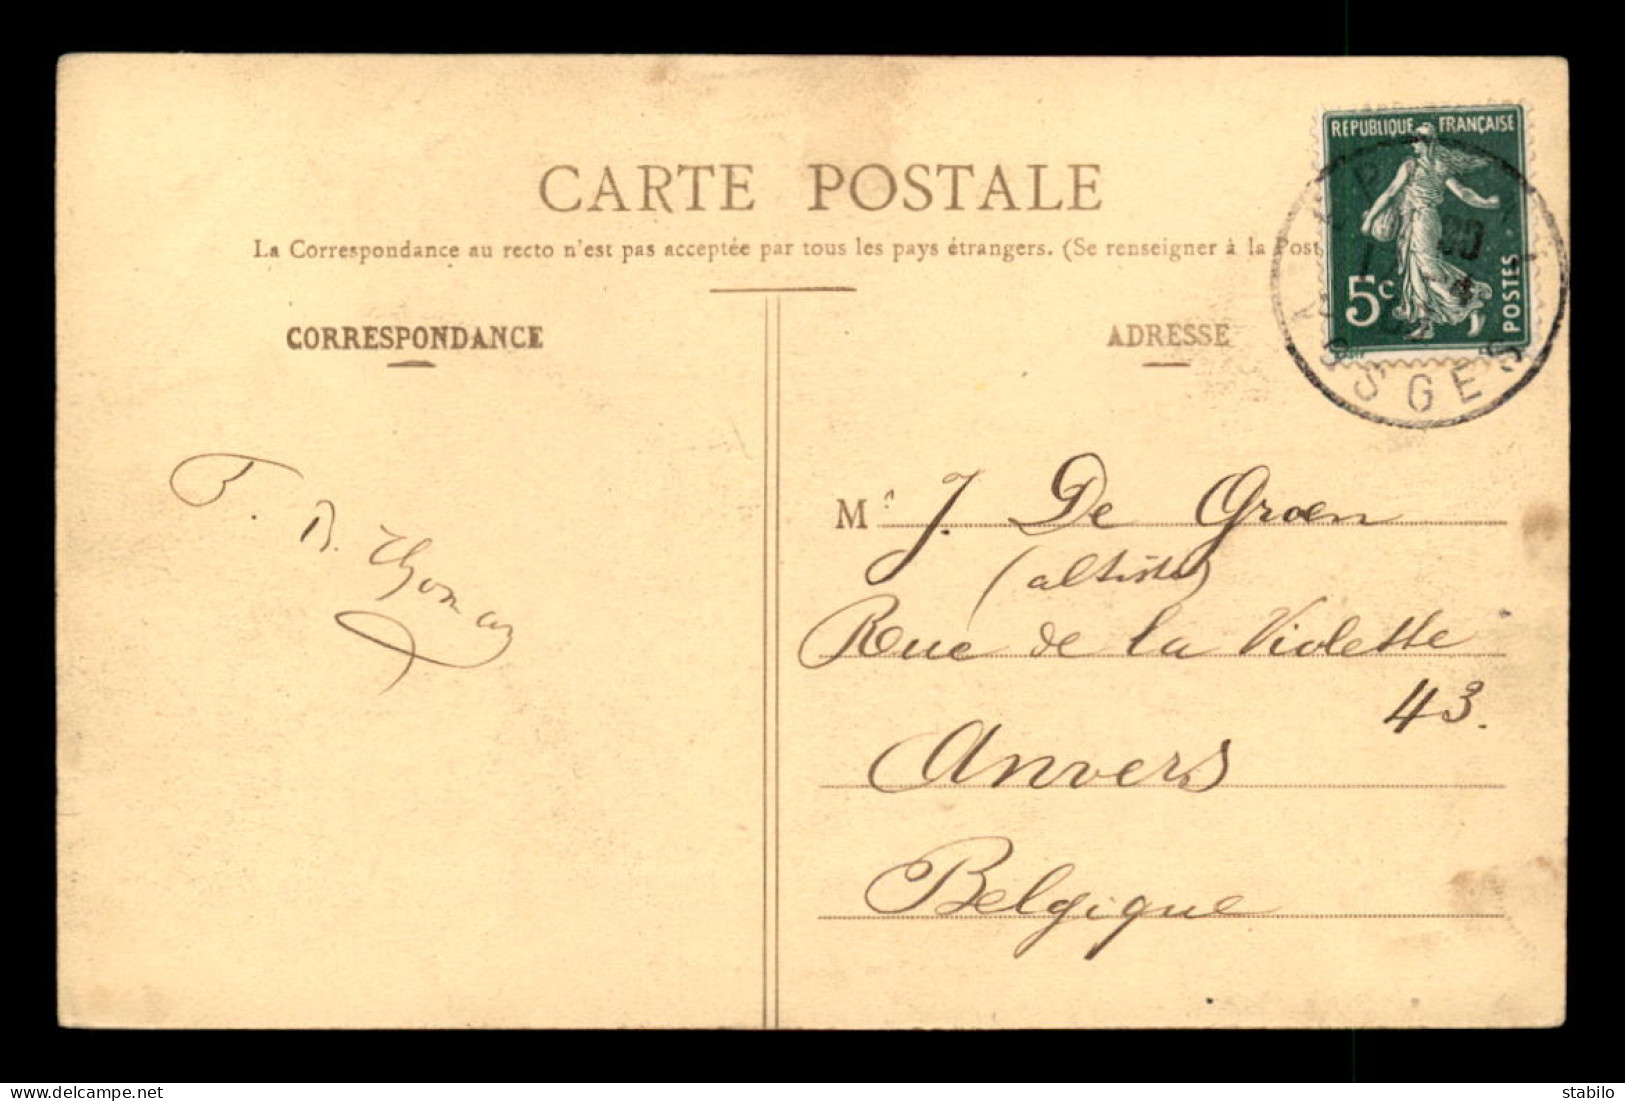 CARTE POSTALE
La Correspondance au recto n'est pas acceptée par tous les pays étrangers. (Se renseigner à la Post
CORRESPONDANCE
ADRESSE
REPUBLIQUE FRANÇAISE
5c
POSTES
SGES
M. J. De Groen
(altiste)
Rue de la Violette
43.
Anvers
Belgique
Thomas
delcampe.net
stabilo